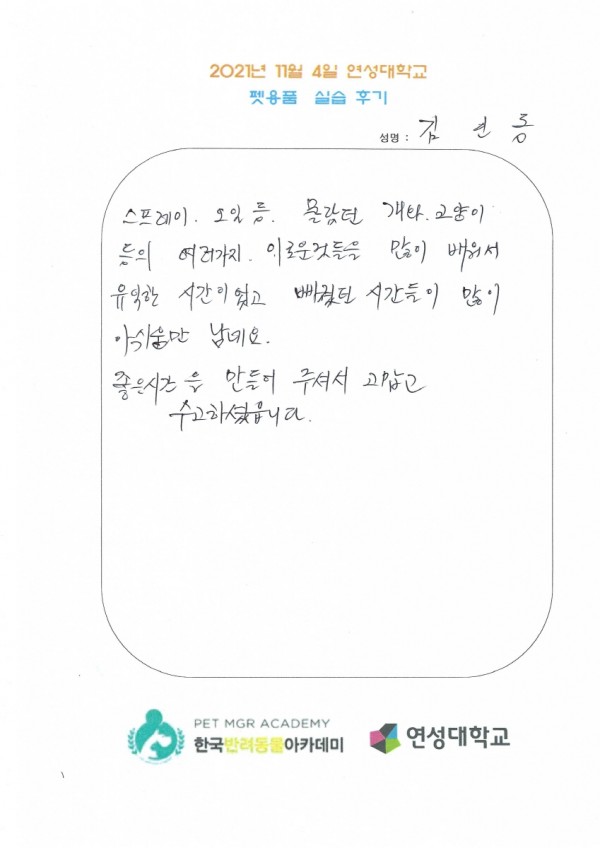 2021년 11월 4일 연성대학교
펫용품 실습 후기
성명 : 김 연 홍
스프레이. 오일 등. 몰랐던 개와. 고양이
등의 여러가지. 이로운것들을 많이 배워서
유익한 시간이었고 빠졌던 시간들이 많이
아쉬움만 남네요.
좋은시간을 만들어 주셔서 고맙고
수고하셨읍니다.
PET MGR ACADEMY
한국반려동물아카데미
연성대학교